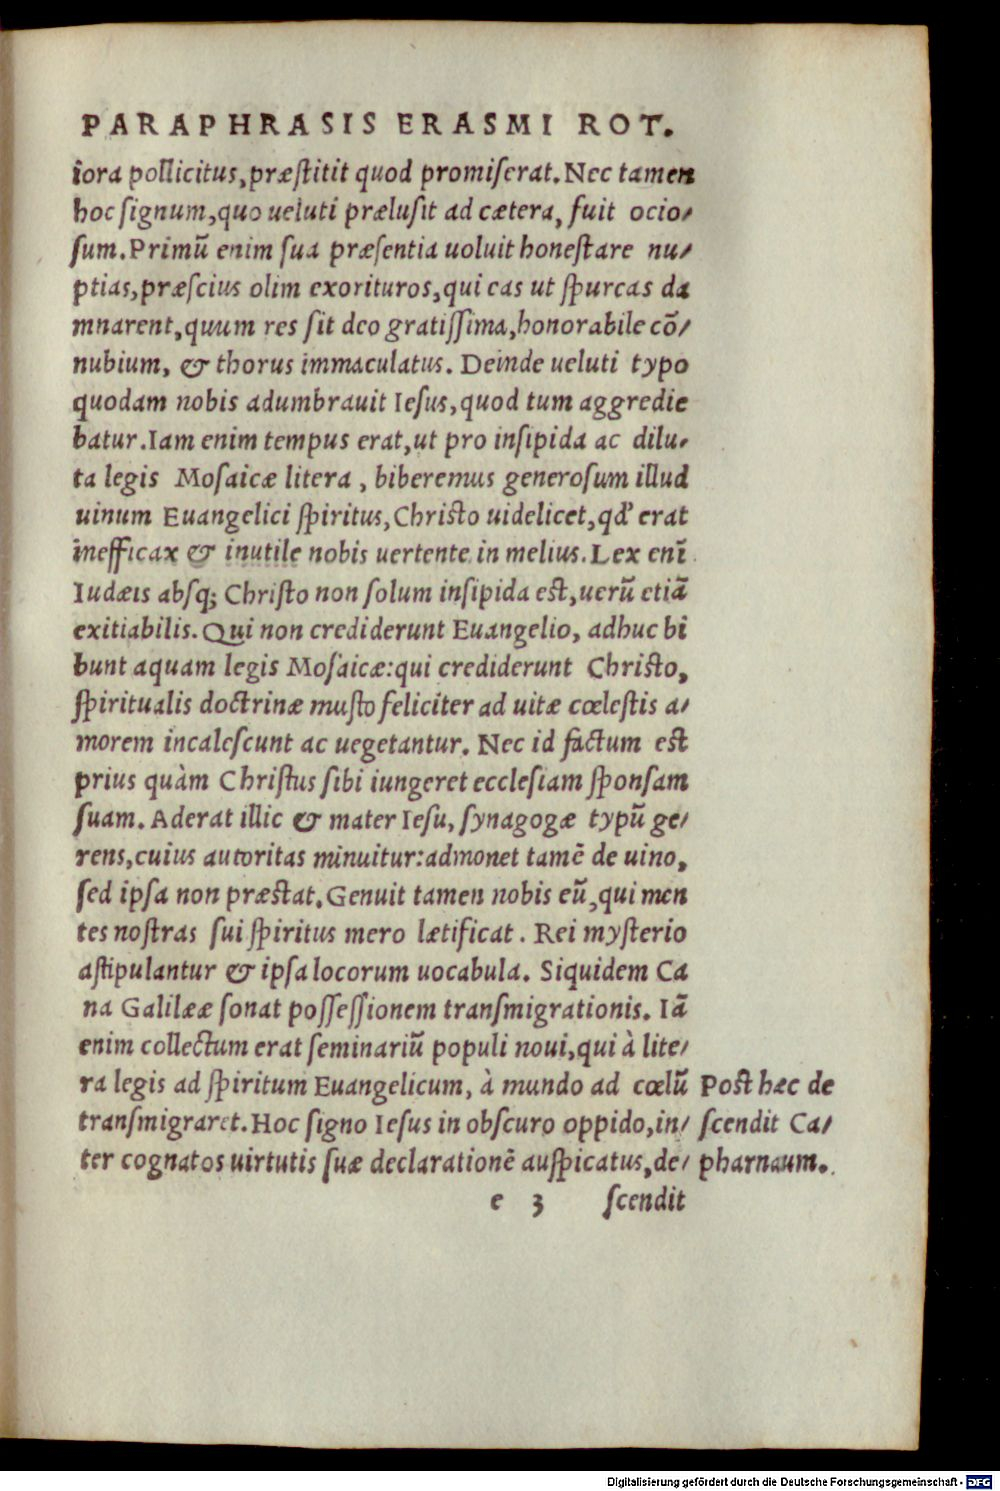 PARAPHRASIS ERASMI ROT.
iora pollicitus, præſtitit quod promiſerat. Nec tamen
hoc ſignum, quo ueluti præluſit ad cætera, fuit ocio/
ſum. Primũ enim ſua præſentia uoluit honeſtare nu/
ptias, præſcius olim exorituros, qui eas ut ſpurcas da
mnarent, quum res ſit deo gratiſſima, honorabile cõ/
nubium, & thorus immaculatus. Deinde ueluti typo
quodam nobis adumbrauit Ieſus, quod tum aggredie
batur. Iam enim tempus erat, ut pro inſipida ac dilu/
ta legis Moſaicæ litera, biberemus generoſum illud
uinum Euangelici ſpiritus, Chriſto uidelicet, qd' erat
inefficax & inutile nobis uertente in melius. Lex enĩ
Iudæis abſq; Chriſto non ſolum inſipida eſt, uerũ etiã
exitiabilis. Qui non crediderunt Euangelio, adhuc bi
bunt aquam legis Moſaicæ: qui crediderunt Chriſto,
ſpiritualis doctrinæ muſto feliciter ad uitæ cœleſtis a/
morem incaleſcunt ac uegetantur. Nec id factum eſt
prius quàm Chriſtus ſibi iungeret eccleſiam ſponſam
ſuam. Aderat illic & mater Ieſu, ſynagogæ typũ ge/
rens, cuius autoritas minuitur: admonet tamẽ de uino,
ſed ipſa non præſtat. Genuit tamen nobis eũ, qui men
tes noſtras ſui ſpiritus mero lætificat. Rei myſterio
aſtipulantur & ipſa locorum uocabula. Siquidem Ca
na Galilææ ſonat poſſeſſionem tranſmigrationis. Iã
enim collectum erat ſeminariũ populi noui, qui à lite/
ra legis ad ſpiritum Euangelicum, à mundo ad cœlũ
tranſmigraret. Hoc ſigno Ieſus in obſcuro oppido, in/
ter cognatos uirtutis ſuæ declarationẽ auſpicatus, de/
Poſt hæc de
ſcendit Ca/
pharnaum.
e 3 ſcendit
Digitalisierung gefördert durch die Deutsche Forschungsgemeinschaft - DFG